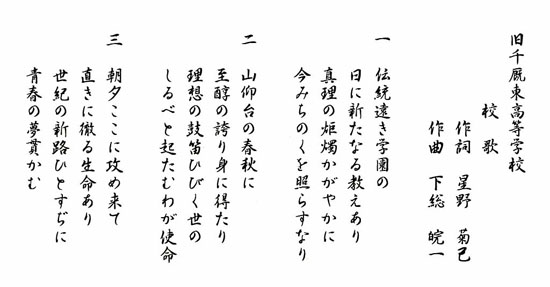 旧千厩東高等学校
校歌
作詞 星野 菊己
作曲 下総 皖一
一 伝統遠き学園の
日に新たなる教えあり
真理の炬燭かがやかに
今みちのくを照らすなり
二 山仰台の春秋に
至醇の誇り身に得たり
理想の鼓笛ひびく世の
しるべと起たむわが使命
三 朝夕ここに攻め来て
直きに徹る生命あり
世紀の新路ひとすぢに
青春の夢貫かむ